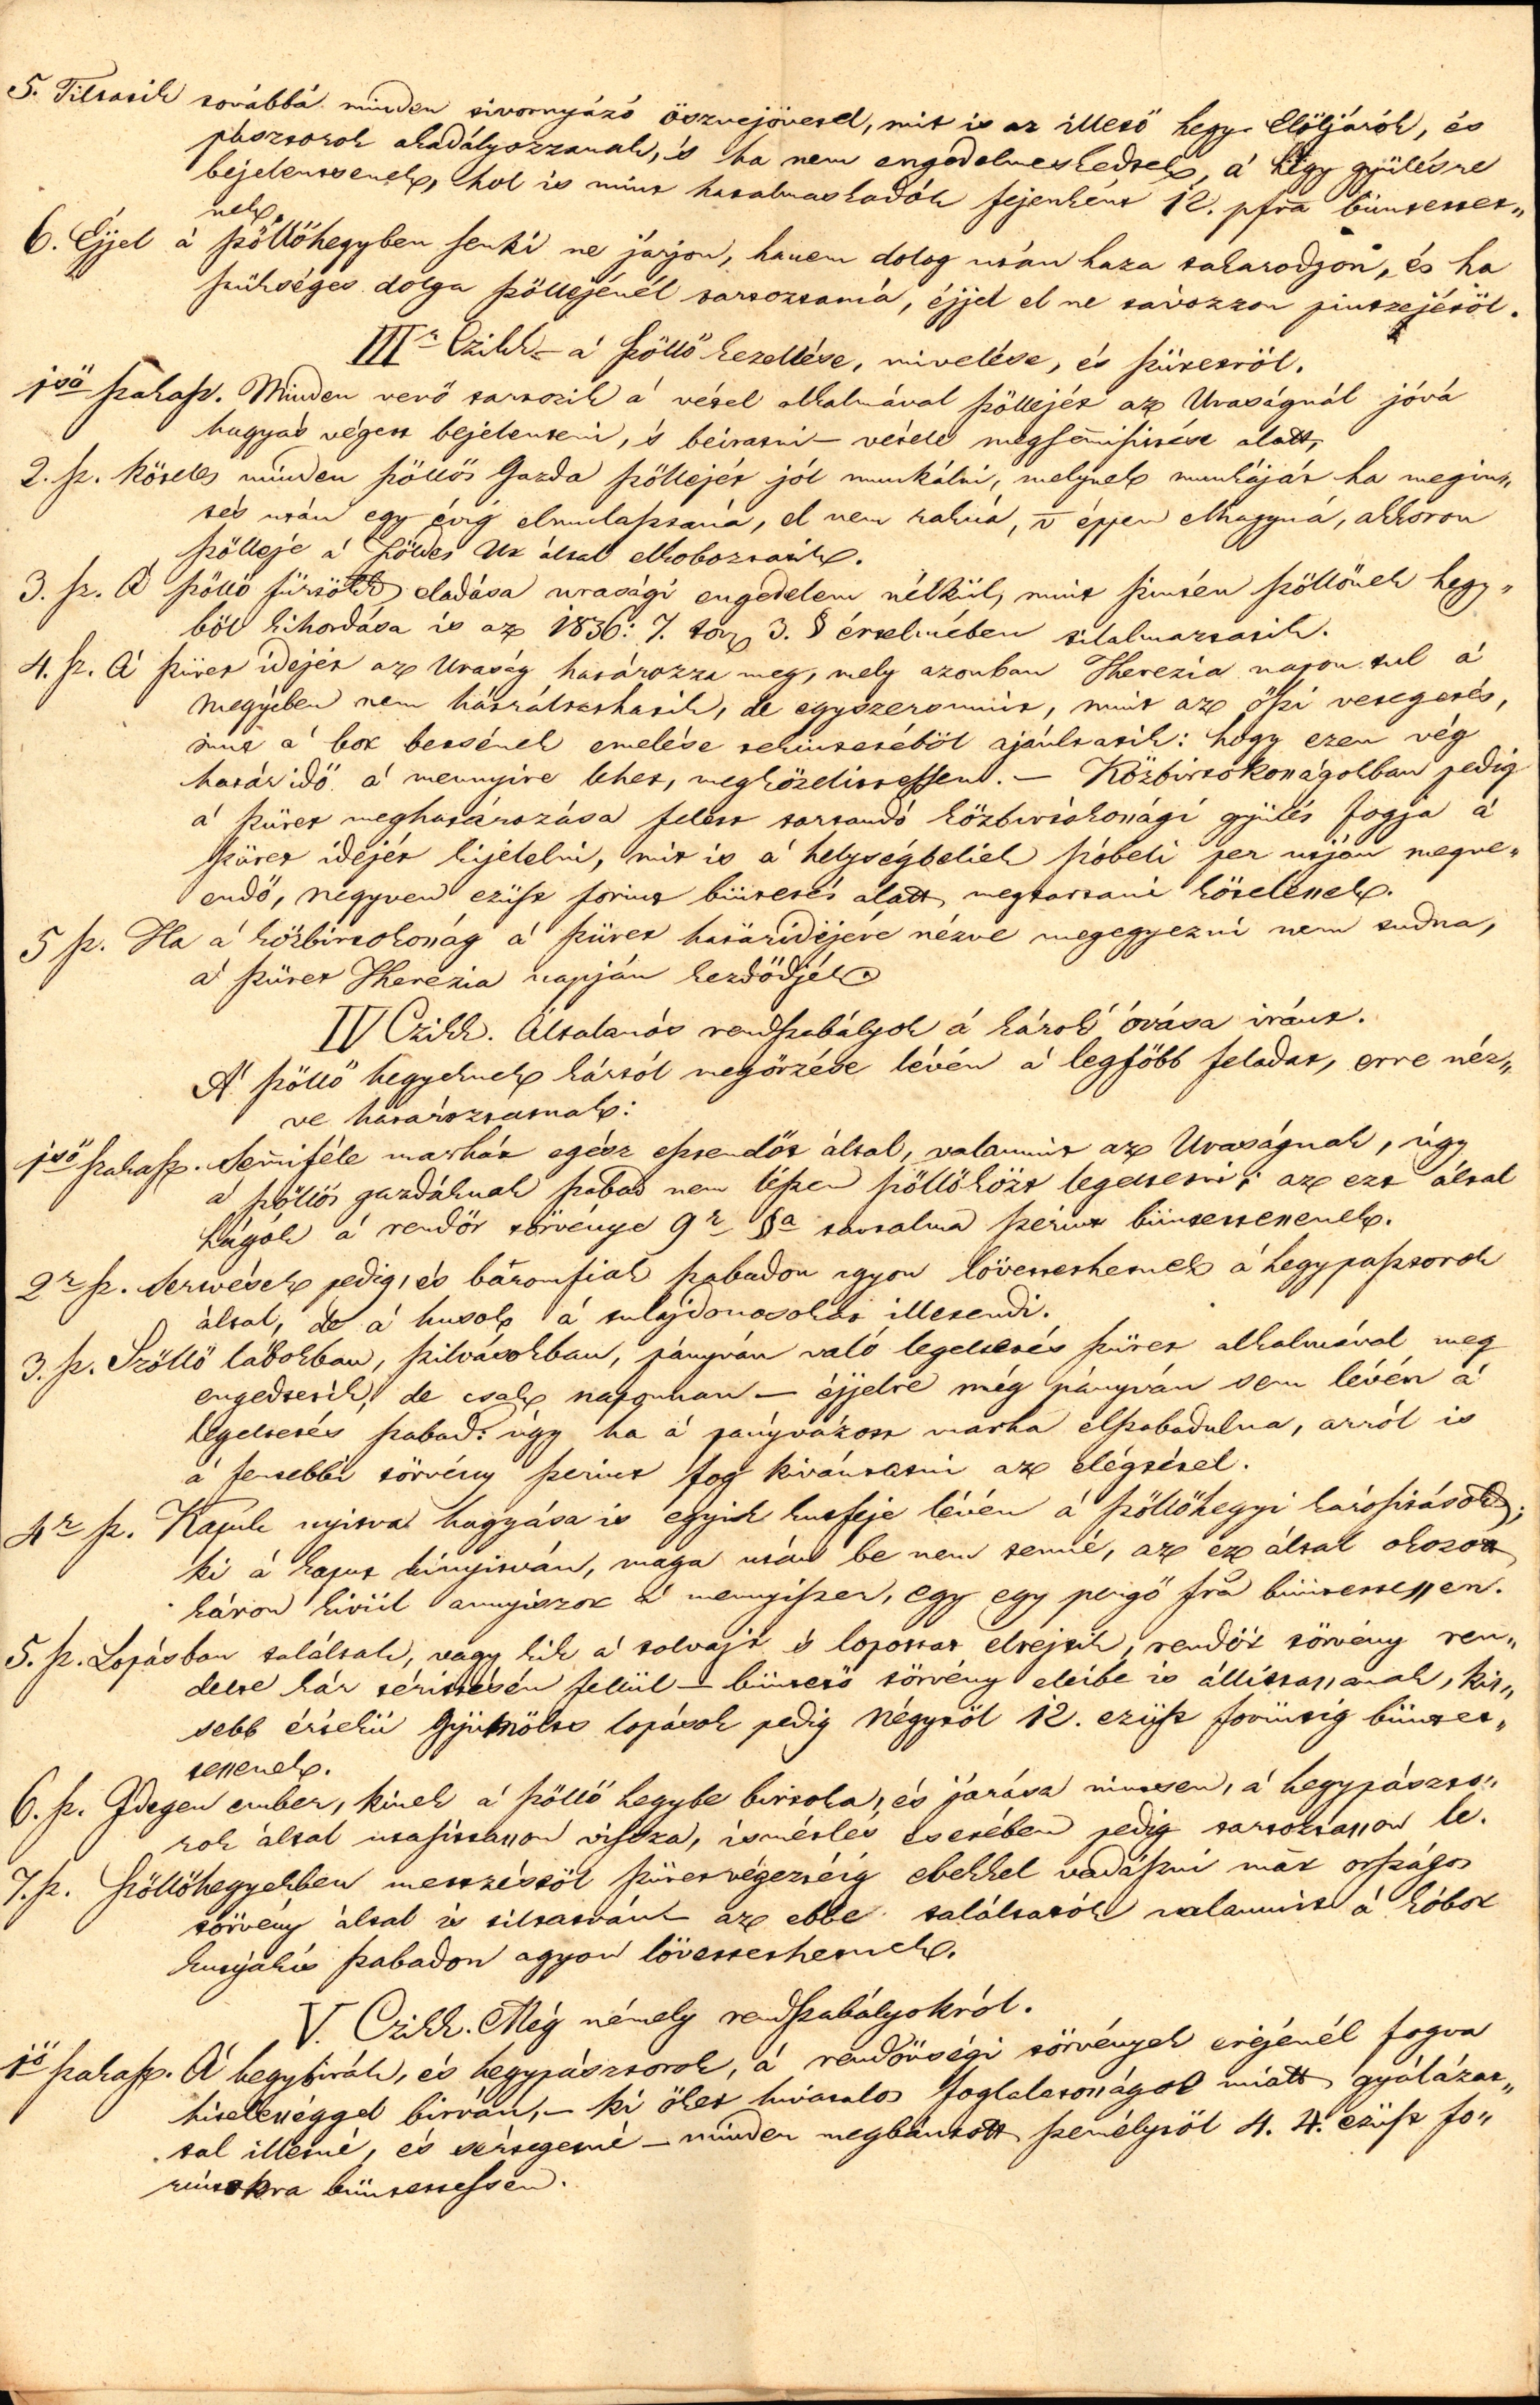 5. Tiltatik továbbá minden tivornyázó öszvejövetel, mit is az illető hegy Elöljárók, és
pásztorok akadályozzanak, 's ha nem engedelmeskedtek, a' hegy gyülésre
bejelentsenek, hol is mint hatalmaskodók fejenként 12. pfra büntettes„
nek.
6. Éjjel a' szöllöhegyben senki ne járjon, hanem dolog után haza takarodjon, és ha
szükséges dolga szöllejénél tartoztatná, éjjel el ne távozzon pintzejétöl.
IIIr Czikk – a' szöllö kezelése, mivelése, és szüretröl.
1sö szakasz. Minden vevö tartozik a' vétel alkalmával szöllejét az Uraságnál jóvá
hagyás végett bejelenteni, 's beiratni – vétele megsemisitése alatt,
2. sz. Köteles minden szöllös Gazda szöllejét jól munkálni, melynek munkáját ha megin„
tés után egy évig elmulasztaná, el nem rakná, v épjen elhagyná, akkoron
szölleje a' földes Ur által elkoboztatik.
3. sz. A' szöllö fürtök eladása urasági engedelem nélkül, mint szintén szöllönek hegy„
böl kihordása is az 1836: 7. törz 3. § értelmében tilalmaztatik.
4. sz. A' szüret idejét az Uraság határozza meg, mely azonban Therezia napon tul a'
Megyében nem hátráltathatik, de egyszersmint, mint az öszi vetegetés,
mint a' bor betsének emelése tekintetéböl ajánltatik: hogy ezen vég
határ idö a' mennyire lehet, megközelitessen. – Közbirtokosságokban pedig
a' szüret meghatározása felett tartandó közbirtokossági gyülés fogja a'
szüret idejét kijelelni, mit is a' helységbeliek szóbeli per utján megve„
endö, negyven ezüst forint büntetés alatt megtartani kötelesek.
5 sz. Ha a' közbirtokosság a' szüret határidejére nézve megegyezni nem tudna,
a' szüret Therezia napján kezdödjék.
IV Czikk. Általános rendszabályok a' károk óvása iránt.
A' szöllö hegyeknek kártól megörzése lévén a' legföbb feladat, erre néz„
ve határoztatnak:
1sö szakasz. Semiféle marhát egész esztendöt által, valamint az Uraságnak, úgy
a' szöllös gazdáknak szabad nem lészen szöllöközt legeltetni; az ezt által
hágók a' rendör törvénye 9r §a tartalma szerint büntettessenek.
2r sz. Sertvések pedig, és baromfiak szabadon agyon lövettethetnek a' hegypásztorok
által, de a' husok a' tulajdonosokat illetendi.
3. sz. Szöllö lábokban, szilvásokban, pányván való legeltetés szüret alkalmával meg
engedtetik, de csak nappunnan – éjjelre még pányván sem lévén a'
legeltetés szabad: úgy ha a' pányvázott marha elszabadulna, arról is
a' fentebbi törvény szerint fog kivántatni az elégtétel.
4r sz. Kapuk nyitva hagyása is egyik kutfeje lévén a' szöllöhegyi kárositásoknak;
ki a' kaput kinyitván, maga után be nem tenné, az ez által okozott
káron kivül annyiszor a' mennyiszer, egy egy pengö fra büntettessen.
5. sz. Lopásban találtak, vagy kik a' tolvajt 's lopottat elrejtik, rendör törvény ren„
delte kár téritésén fellül – büntetö törvény eleibe is állittassanak, kis„
sebb értékü Gyümölts lopások pedig Négytöl 12. ezüst forintig büntet„
tessenek.
6. sz. Idegen ember, kinek a' szöllö hegybe birtoka, és járása nintsen, a' hegypászto„
rok által utasittasson vissza, ismétlés esetében pedig tartoztasson le.
7. sz. Szöllöhegyekben metszéstöl szüretvégeztéig ebekkel vadászni már országos
törvény által is tiltatván az ebbe találtatók valamint a' kóbor
kutyák is szabadon agyon lövettethetnek.
V. Czikk. Még némely rendszabályokról.
1sö szakasz. A' hegybirák, és hegypásztorok, a' rendörségi törvények erejénél fogva
hitelességgel birván, – ki öket hivatalos foglalatosságok miatt gyalázat„
tal illetné, és sértegetné – minden megbántott személytöl 4. 4. ezüst fo„
rintokra büntettessen.